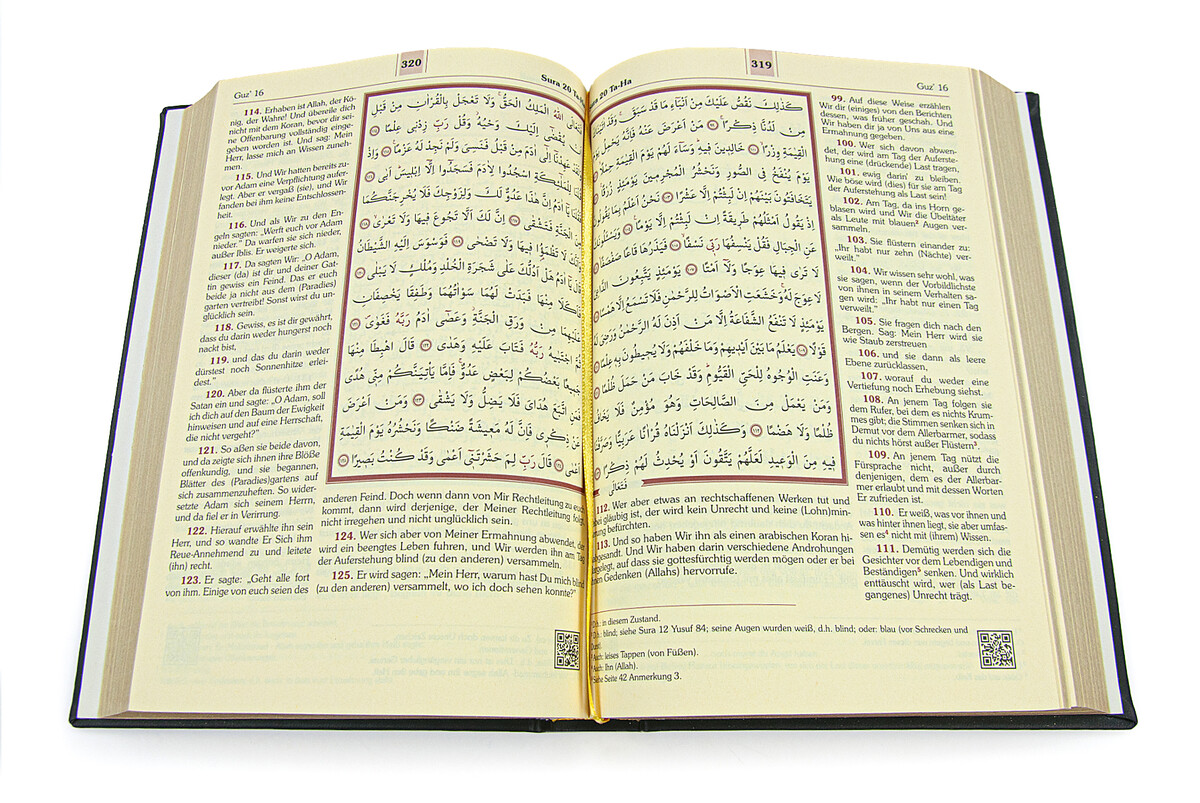 319
Sura 20 Ta-Ha
Guz' 16
كَذٰلِكَ نَقُصُّ عَلَيْكَ مِنْ اَنْبَٓاءِ مَا قَدْ سَبَقَۚ وَقَدْ
مِنْ لَدُنَّا ذِكْرًاۚ ﴿٩٩﴾ مَنْ اَعْرَضَ عَنْهُ فَاِنَّهُ يَحْمِلُ
الْقِيٰمَةِ وِزْرًاۙ ﴿١٠٠﴾ خَالِدِينَ فِيهِ وَسَٓاءَ لَهُمْ يَوْمَ الْقِيٰمَةِ حِمْلًاۙ
يَوْمَ يُنْفَخُ فِي الصُّورِ وَنَحْشُرُ الْمُجْرِمِينَ يَوْمَئِذٍ زُرْقًاۚ
يَتَخَافَتُونَ بَيْنَهُمْ اِنْ لَبِثْتُمْ اِلَّا عَشْرًا ﴿١٠٣﴾ نَحْنُ اَعْلَمُ بِمَا
اِذْ يَقُولُ اَمْثَلُهُمْ طَرِيقَةً اِنْ لَبِثْتُمْ اِلَّا يَوْمًا۟ ﴿١٠٤﴾
عَنِ الْجِبَالِ فَقُلْ يَنْسِفُهَا رَبِّي نَسْفًاۙ ﴿١٠٥﴾ فَيَذَرُهَا قَاعًا صَفْصَفًاۙ
لَا تَرٰى فِيهَا عِوَجًا وَلَٓا اَمْتًاۜ ﴿١٠٧﴾ يَوْمَئِذٍ يَتَّبِعُونَ
لَا عِوَجَ لَهُۚ وَخَشَعَتِ الْاَصْوَاتُ لِلرَّحْمٰنِ فَلَا تَسْمَعُ اِلَّا هَمْسًا
يَوْمَئِذٍ لَا تَنْفَعُ الشَّفَاعَةُ اِلَّا مَنْ اَذِنَ لَهُ الرَّحْمٰنُ وَرَضِيَ لَهُ
قَوْلًا ﴿١٠٩﴾ يَعْلَمُ مَا بَيْنَ اَيْدِيهِمْ وَمَا خَلْفَهُمْ وَلَا يُحِيطُونَ بِهِ عِلْمًا
وَعَنَتِ الْوُجُوهُ لِلْحَيِّ الْقَيُّومِۜ وَقَدْ خَابَ مَنْ حَمَلَ ظُلْمًا
وَمَنْ يَعْمَلْ مِنَ الصَّالِحَاتِ وَهُوَ مُؤْمِنٌ فَلَا يَخَافُ
ظُلْمًا وَلَا هَضْمًا ﴿١١٢﴾ وَكَذٰلِكَ اَنْزَلْنَاهُ قُرْاٰنًا عَرَبِيًّا وَصَرَّفْنَا
فِيهِ مِنَ الْوَعِيدِ لَعَلَّهُمْ يَتَّقُونَ اَوْ يُحْدِثُ لَهُمْ ذِكْرًا
فَتَعَالَى
99. Auf diese Weise erzählen
Wir dir (einiges) von den Berichten
dessen, was früher geschah. Und
Wir haben dir ja von Uns aus eine
Ermahnung gegeben.
100. Wer sich davon abwen-
det, der wird am Tag der Auferste-
hung eine (drückende) Last tragen,
101. ewig darin' zu bleiben.
Wie böse wird (dies) für sie am Tag
der Auferstehung als Last sein!
102. Am Tag, da ins Horn ge-
blasen wird und Wir die Übeltäter
als Leute mit blauen² Augen ver-
sammeln.
103. Sie flüstern einander zu:
„Ihr habt nur zehn (Nächte) ver-
weilt."
104. Wir wissen sehr wohl, was
sie sagen, wenn der Vorbildlichste
von ihnen in seinem Verhalten sa-
gen wird: „Ihr habt nur einen Tag
verweilt."
105. Sie fragen dich nach den
Bergen. Sag: Mein Herr wird sie
wie Staub zerstreuen
106. und sie dann als leere
Ebene zurücklassen,
107. worauf du weder eine
Vertiefung noch Erhebung siehst.
108. An jenem Tag folgen sie
dem Rufer, bei dem es nichts Krum-
mes gibt; die Stimmen senken sich in
Demut vor dem Allerbarmer, sodass
du nichts hörst außer Flüstern³.
109. An jenem Tag nützt die
Fürsprache nicht, außer durch
denjenigen, dem es der Allerbar-
mer erlaubt und mit dessen Worten
Er zufrieden ist.
110. Er weiß, was vor ihnen und
was hinter ihnen liegt, sie aber umfas-
sen es⁴ nicht mit (ihrem) Wissen.
111. Demütig werden sich die
Gesichter vor dem Lebendigen und
Beständigen⁵ senken. Und wirklich
enttäuscht wird, wer (als Last be-
gangenes) Unrecht trägt.
112. Wer aber etwas an rechtschaffenen Werken tut und
gläubig ist, der wird kein Unrecht und keine (Lohn)min-
befürchten.
113. Und so haben Wir ihn als einen arabischen Koran hi-
Und Wir haben darin verschiedene Androhungen
auf dass sie gottesfürchtig werden mögen oder er bei
Gedenken (Allahs) hervorrufe.
D.h.: in diesem Zustand.
D.h.: blind; siehe Sura 12 Yusuf 84; seine Augen wurden weiß, d.h. blind; oder: blau (vor Schrecken und
Durst).
Auch: leises Tappen (von Füßen).
Auch: Ihn (Allah).
Siehe Seite 42 Anmerkung 3.
320
Guz' 16
Sura 20 Ta-Ha
اللّٰهُ الْمَلِكُ الْحَقُّۚ وَلَا تَعْجَلْ بِالْقُرْاٰنِ مِنْ قَبْلِ
يُقْضٰٓى اِلَيْكَ وَحْيُهُۘ وَقُلْ رَبِّ زِدْنِي عِلْمًا ﴿١١٤﴾
عَهِدْنَٓا اِلٰٓى اٰدَمَ مِنْ قَبْلُ فَنَسِيَ وَلَمْ نَجِدْ لَهُ عَزْمًا۟ ﴿١١٥﴾ وَاِذْ
لِلْمَلٰٓئِكَةِ اسْجُدُوا لِاٰدَمَ فَسَجَدُٓوا اِلَّٓا اِبْلِيسَۜ اَبٰى ﴿١١٦﴾
يَٓا اٰدَمُ اِنَّ هٰذَا عَدُوٌّ لَكَ وَلِزَوْجِكَ فَلَا يُخْرِجَنَّكُمَا
مِنَ الْجَنَّةِ فَتَشْقٰى ﴿١١٧﴾ اِنَّ لَكَ اَلَّا تَجُوعَ فِيهَا وَلَا تَعْرٰىۙ ﴿١١٨﴾
لَا تَظْمَؤُ۬ا فِيهَا وَلَا تَضْحٰى ﴿١١٩﴾ فَوَسْوَسَ اِلَيْهِ الشَّيْطَانُ
يَٓا اٰدَمُ هَلْ اَدُلُّكَ عَلٰى شَجَرَةِ الْخُلْدِ وَمُلْكٍ لَا يَبْلٰى ﴿١٢٠﴾
مِنْهَا فَبَدَتْ لَهُمَا سَوْاٰتُهُمَا وَطَفِقَا يَخْصِفَانِ
عَلَيْهِمَا مِنْ وَرَقِ الْجَنَّةِۘ وَعَصٰٓى اٰدَمُ رَبَّهُ فَغَوٰىۖ ﴿١٢١﴾
اجْتَبٰيهُ رَبُّهُ فَتَابَ عَلَيْهِ وَهَدٰى ﴿١٢٢﴾ قَالَ اهْبِطَا مِنْهَا
جَمِيعًا بَعْضُكُمْ لِبَعْضٍ عَدُوٌّۚ فَاِمَّا يَأْتِيَنَّكُمْ مِنِّي هُدًى
اتَّبَعَ هُدَايَ فَلَا يَضِلُّ وَلَا يَشْقٰى ﴿١٢٣﴾ وَمَنْ اَعْرَضَ
عَنْ ذِكْرِي فَاِنَّ لَهُ مَعِيشَةً ضَنْكًا وَنَحْشُرُهُ يَوْمَ الْقِيٰمَةِ
اَعْمٰى ﴿١٢٤﴾ قَالَ رَبِّ لِمَ حَشَرْتَنِٓي اَعْمٰى وَقَدْ كُنْتُ بَصِيرًا ﴿١٢٥﴾
114. Erhaben ist Allah, der Kö-
nig, der Wahre! Und übereile dich
nicht mit dem Koran, bevor dir sei-
ne Offenbarung vollständig einge-
geben worden ist. Und sag: Mein
Herr, lasse mich an Wissen zuneh-
men.
115. Und Wir hatten bereits zu-
vor Adam eine Verpflichtung aufer-
legt. Aber er vergaß (sie), und Wir
fanden bei ihm keine Entschlossen-
heit.
116. Und als Wir zu den En-
geln sagten: „Werft euch vor Adam
nieder." Da warfen sie sich nieder,
außer Iblis. Er weigerte sich.
117. Da sagten Wir: „O Adam,
dieser (da) ist dir und deiner Gat-
tin gewiss ein Feind. Das er euch
beide ja nicht aus dem (Paradies)
garten vertreibt! Sonst wirst du un-
glücklich sein.
118. Gewiss, es ist dir gewährt,
dass du darin weder hungerst noch
nackt bist,
119. und das du darin weder
dürstest noch Sonnenhitze erlei-
dest."
120. Aber da flüsterte ihm der
Satan ein und sagte: „O Adam, soll
ich dich auf den Baum der Ewigkeit
hinweisen und auf eine Herrschaft,
die nicht vergeht?"
121. So aßen sie beide davon,
und da zeigte sich ihnen ihre Blöße
offenkundig, und sie begannen,
Blätter des (Paradies)gartens auf
sich zusammenzuheften. So wider-
setzte Adam sich seinem Herrn,
und da fiel er in Verirrung.
122. Hierauf erwählte ihn sein
Herr, und so wandte Er Sich ihm
Reue-Annehmend zu und leitete
(ihn) recht.
123. Er sagte: „Geht alle fort
von ihm. Einige von euch seien des
anderen Feind. Doch wenn dann von Mir Rechtleitung zu euch
kommt, dann wird derjenige, der Meiner Rechtleitung folgt,
nicht irregehen und nicht unglücklich sein.
124. Wer sich aber von Meiner Ermahnung abwendet, der
wird ein beengtes Leben fuhren, und Wir werden ihn am Tag
der Auferstehung blind (zu den anderen) versammeln.
125. Er wird sagen: „Mein Herr, warum hast Du mich blind
(zu den anderen) versammelt, wo ich doch sehen konnte?"